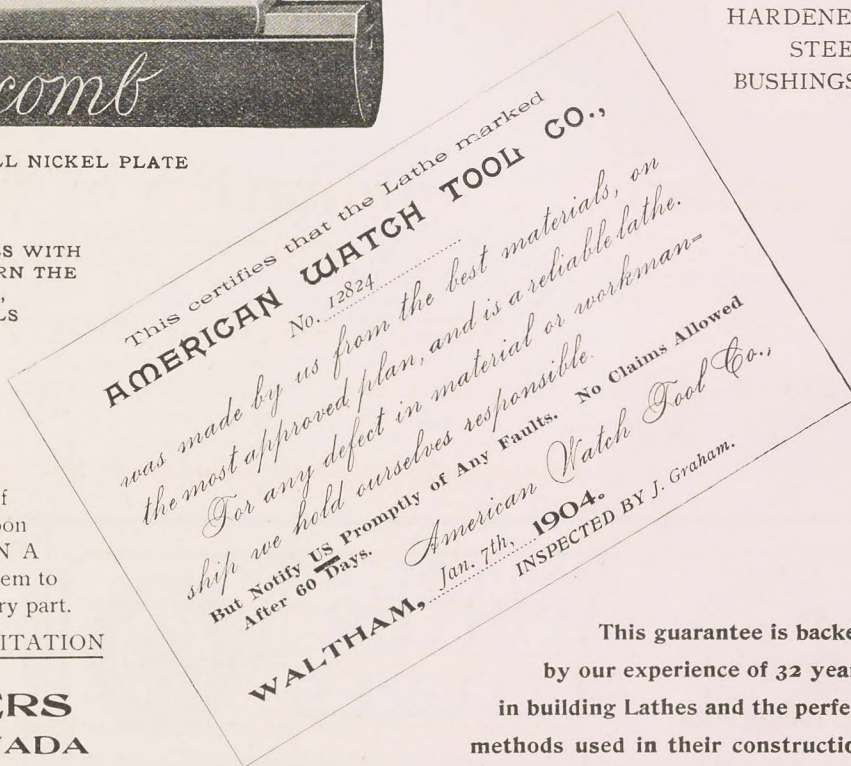 comb
LL NICKEL PLATE
S WITH
RN THE
LS
HARDENE
STEE
BUSHINGS
This certifies that the Lathe marked
AMERICAN WATCH TOOL CO.,
No. 12824
was made by us from the best materials, on
the most approved plan, and is a reliable lathe.
For any defect in material or workman=
ship we hold ourselves responsible.
But Notify US Promptly of Any Faults. No Claims Allowed
After 60 Days.
American Watch Tool Co.,
WALTHAM, Jan. 7th, 1904.
INSPECTED BY J. Graham.
f
on
N A
em to
ry part.
ITATION
ERS
ADA
This guarantee is backe
by our experience of 32 year
in building Lathes and the perfe
methods used in their constructio